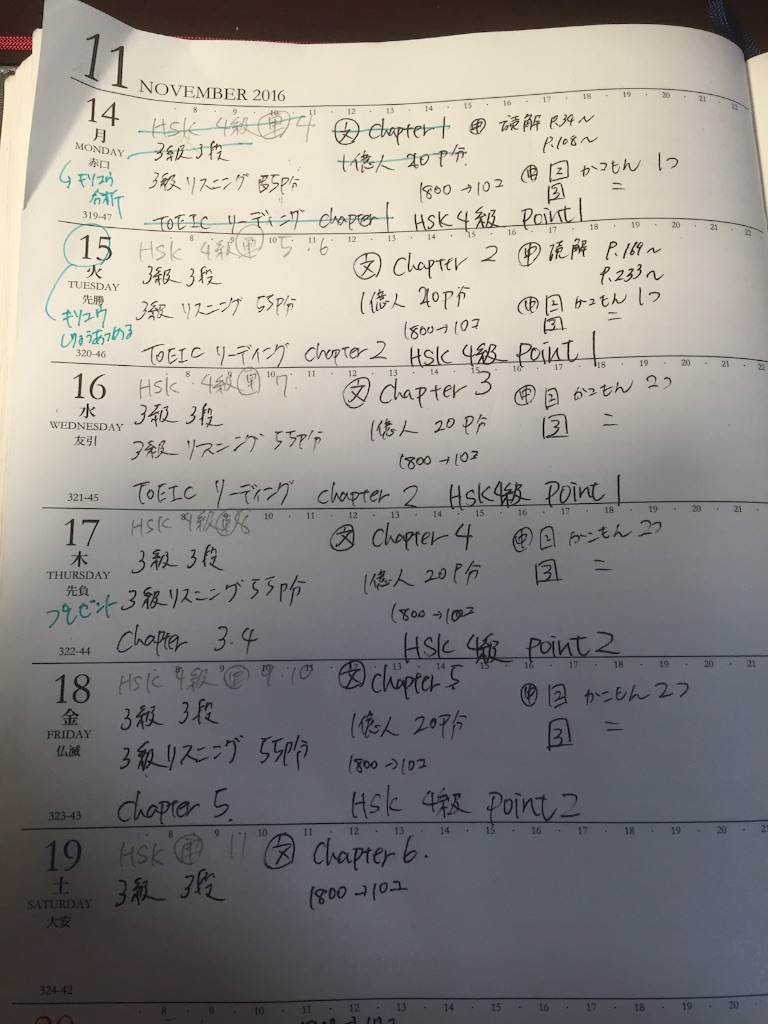 11 NOVEMBER 2016
8 9 10 11 12 13 14 15 16 17 18 19 20 21 22
14 月 MONDAY 赤口
HSK 4級 4 文 Chapter 1 申 読解 P.34〜
3級 3段 1億人 20P分 P.108〜
3級 リスニング 55P分 1800→10コ 申 2 かこもん 1つ
3 =
TOEIC リーディング Chapter 1 HSK 4級 Point 1
319-47
15 火 TUESDAY 先勝
HSK 4級 5 6 文 Chapter 2 申 読解 P.169〜
3級 3段 1億人 20P分 P.233〜
3級 リスニング 55P分 1800→10コ 申 2 かこもん 1つ
3 =
TOEIC リーディング Chapter 2 HSK 4級 Point 1
320-46
16 水 WEDNESDAY 友引
HSK 4級 7 文 Chapter 3 申 2 かこもん 2つ
3級 3段 1億人 20P分 3 =
3級 リスニング 55P分 1800→10コ
TOEIC リーディング Chapter 2 HSK4級 Point 1
321-45
17 木 THURSDAY 先負
HSK 4級 8 文 Chapter 4 申 2 かこもん 2つ
3級 3段 1億人 20P分 3 =
3級リスニング 55P分 1800→10コ
プレゼント
Chapter 3.4 HSK 4級 Point 2
322-44
18 金 FRIDAY 仏滅
HSK 4級 9 10 文 Chapter 5 申 2 かこもん 2つ
3級 3段 1億人 20P分 3 =
3級リスニング 55P分 1800→10コ
Chapter 5. HSK 4級 Point 2
323-43
19 土 SATURDAY 大安
HSK 11 文 Chapter 6.
3級 3段 1800→10コ
324-42